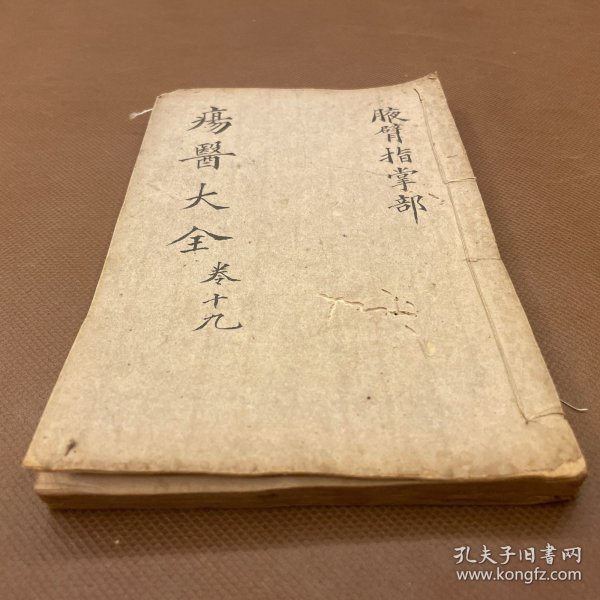 腋臂指掌部
瘍醫大全 卷十九
孔夫子旧书网
www.kongfz.com